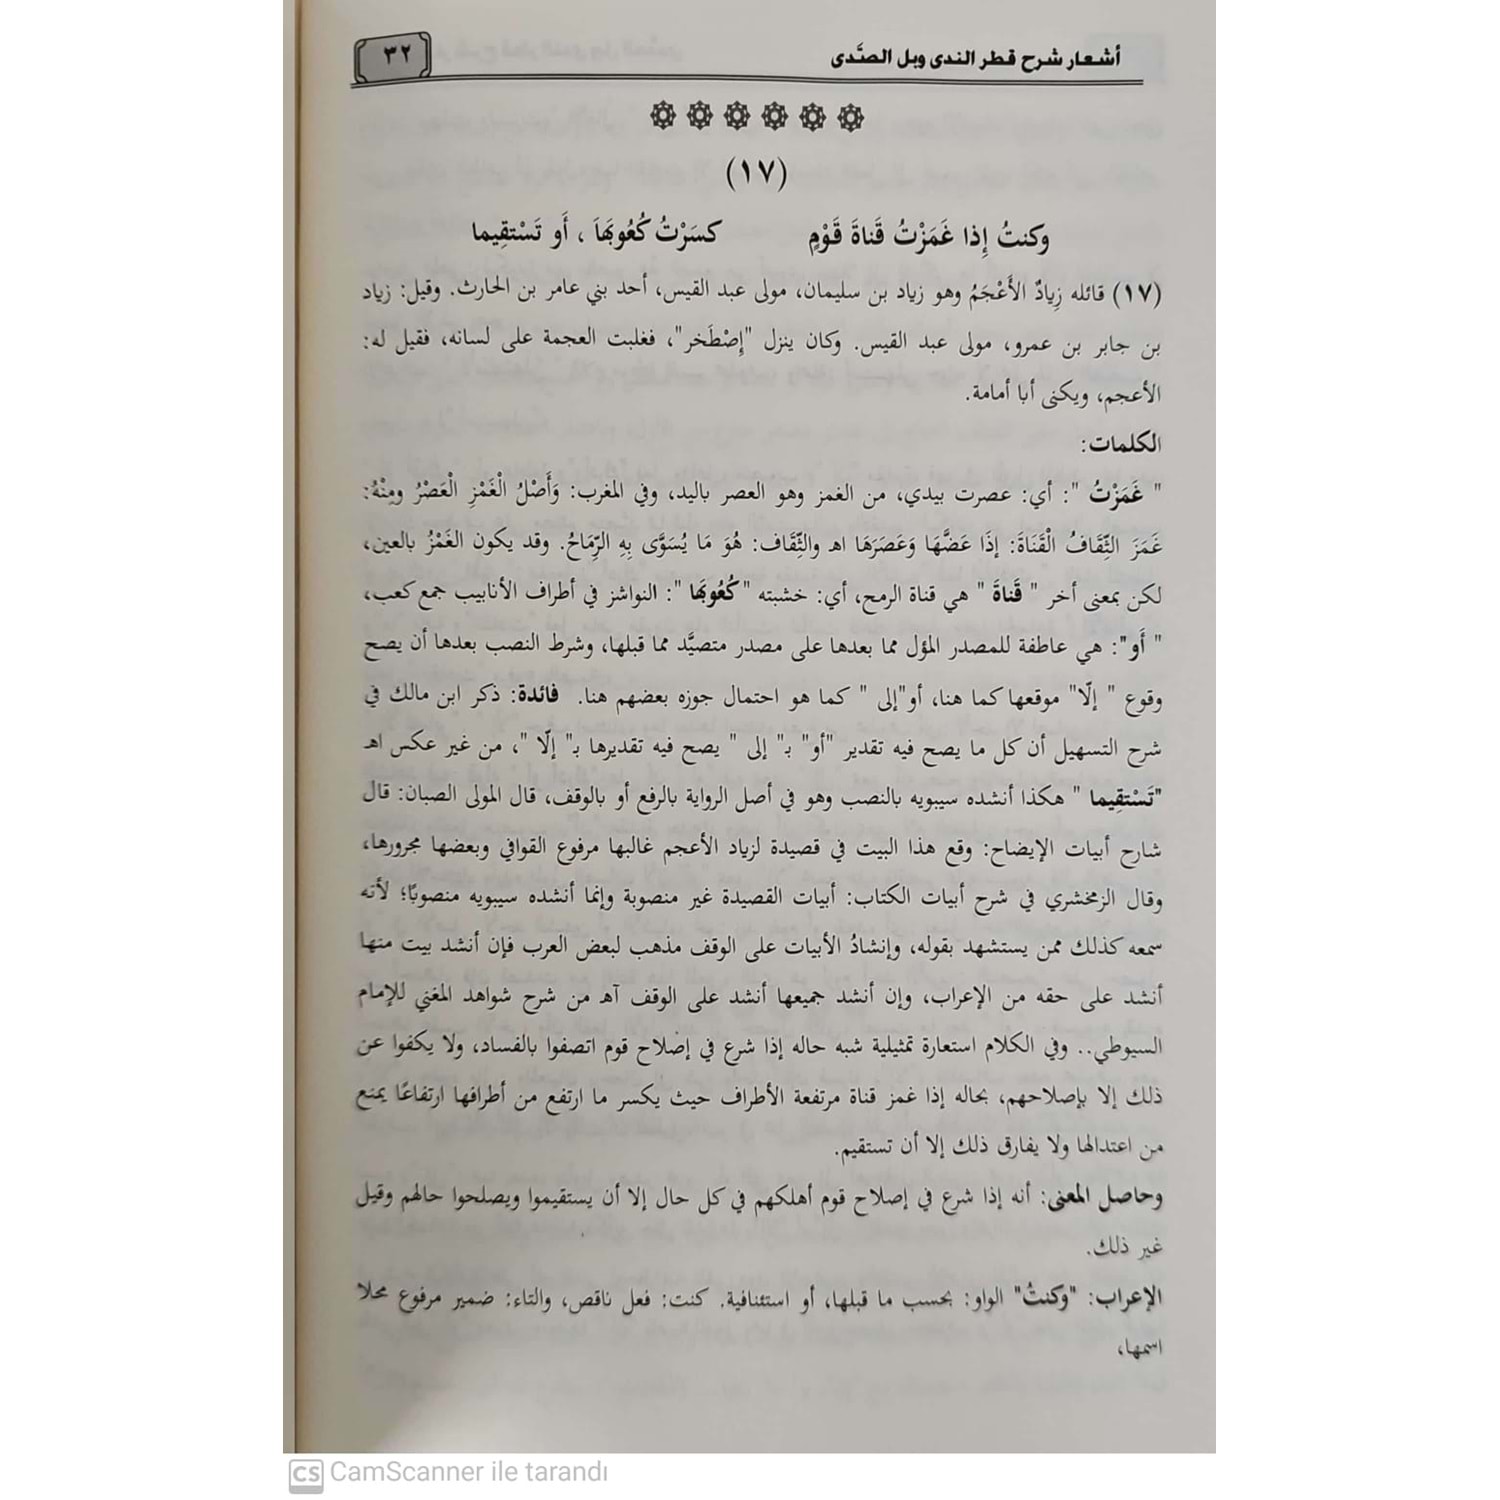 أشعار شرح قطر الندى وبل الصَّدى
٣٢
(١٧)
وكنتُ إِذا غَمَزْتُ قَناةَ قَوْمٍ كسَرْتُ كُعُوبَهَا ، أَو تَسْتقِيما
(١٧) قائله زِيادٌ الأَعْجَمُ وهو زياد بن سليمان، مولى عبد القيس، أحد بني عامر بن الحارث. وقيل: زياد
بن جابر بن عمرو، مولى عبد القيس. وكان ينزل "إصْطَخر"، فغلبت العجمة على لسانه، فقيل له:
الأعجم، ويكنى أبا أمامة.
الكلمات:
" غَمَزْتُ ": أي: عصرت بيدي، من الغمز وهو العصر باليد، وفي المغرب: وَأَصْلُ الْغَمْزِ الْعَصْرُ ومِنْهُ:
غَمَزَ الثِّقَافُ الْقَنَاةَ: إذَا عَضَّهَا وَعَصَرَهَا اهـ والثِّقَاف: هُوَ مَا يُسَوَّى بِهِ الرِّمَاحُ. وقد يكون الغَمْزُ بالعين،
لكن بمعنى أخر " قَناةَ " هي قناة الرمح، أي: خشبته "كُعُوبَهَا ": النواشز في أطراف الأنابيب جمع كعب،
" أَو": هي عاطفة للمصدر المؤل مما بعدها على مصدر متصيَّد مما قبلها، وشرط النصب بعدها أن يصح
وقوع " إلّا" موقعها كما هنا، أو"إلى " كما هو احتمال جوزه بعضهم هنا. فائدة: ذكر ابن مالك في
شرح التسهيل أن كل ما يصح فيه تقدير "أو" بـ" إلى " يصح فيه تقديرها بـ" إلّا "، من غير عكس اهـ
"تَسْتقِيما " هكذا أنشده سيبويه بالنصب وهو في أصل الرواية بالرفع أو بالوقف، قال المولى الصبان: قال
شارح أبيات الإيضاح: وقع هذا البيت في قصيدة لزياد الأعجم غالبها مرفوع القوافي وبعضها مجرورها،
وقال الزمخشري في شرح أبيات الكتاب: أبيات القصيدة غير منصوبة وإنما أنشده سيبويه منصوبًا؛ لأنه
سمعه كذلك ممن يستشهد بقوله، وإنشادُ الأبيات على الوقف مذهب لبعض العرب فإن أنشد بيت منها
أنشد على حقه من الإعراب، وإن أنشد جميعها أنشد على الوقف آهـ من شرح شواهد المغني للإمام
السيوطي.. وفي الكلام استعارة تمثيلية شبه حاله إذا شرع في إصلاح قوم اتصفوا بالفساد، ولا يكفوا عن
ذلك إلا بإصلاحهم، بحاله إذا غمز قناة مرتفعة الأطراف حيث يكسر ما ارتفع من أطرافها ارتفاعًا يمنع
من اعتدالها ولا يفارق ذلك إلا أن تستقيم.
وحاصل المعنى: أنه إذا شرع في إصلاح قوم أهلكهم في كل حال إلا أن يستقيموا ويصلحوا حالهم وقيل
غير ذلك.
الإعراب: "وكنتُ" الواو: بحسب ما قبلها، أو استئنافية. كنت: فعل ناقص، والتاء: ضمير مرفوع محلا
اسمها،
CS CamScanner ile tarandı